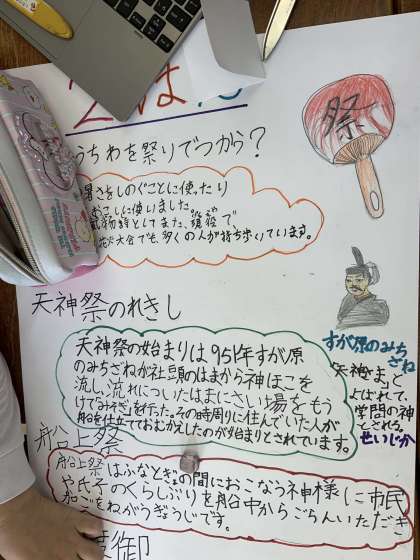 は
うちわを祭りでつかう?
祭
暑さをしのぐことに使ったり
に使いました。
また、
大会でも、多くの人が持ち歩いています。
天神祭のれきし
すが原のみち
ざね
天神さまと
よばれて、
学問の神
とされる。
せいじか
天神祭の始まりは951年すが原
のみちざねが社頭のはまから神ほこを
流し、流れついたはまにさい場をもう
けて「みそぎ」を行った。その時周りに住んでいた人が
船を仕立てておむかえしたのが始まりとされています。
船台上祭
船台上祭はふなとぎょの間におこなう神様に市民
や氏子のくらしぶりを船中からごらんいただき
ごをねがうぎょうじです。
御